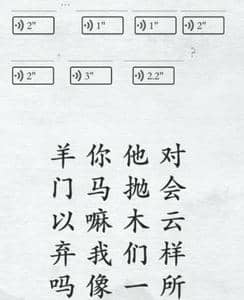 ...
2" 1" 1" 2"
, ?
2" 3" 2.2"
羊 你 他 对
门 马 抛 会
以 嘛 木 云
弃 我 们 样
吗 像 一 所